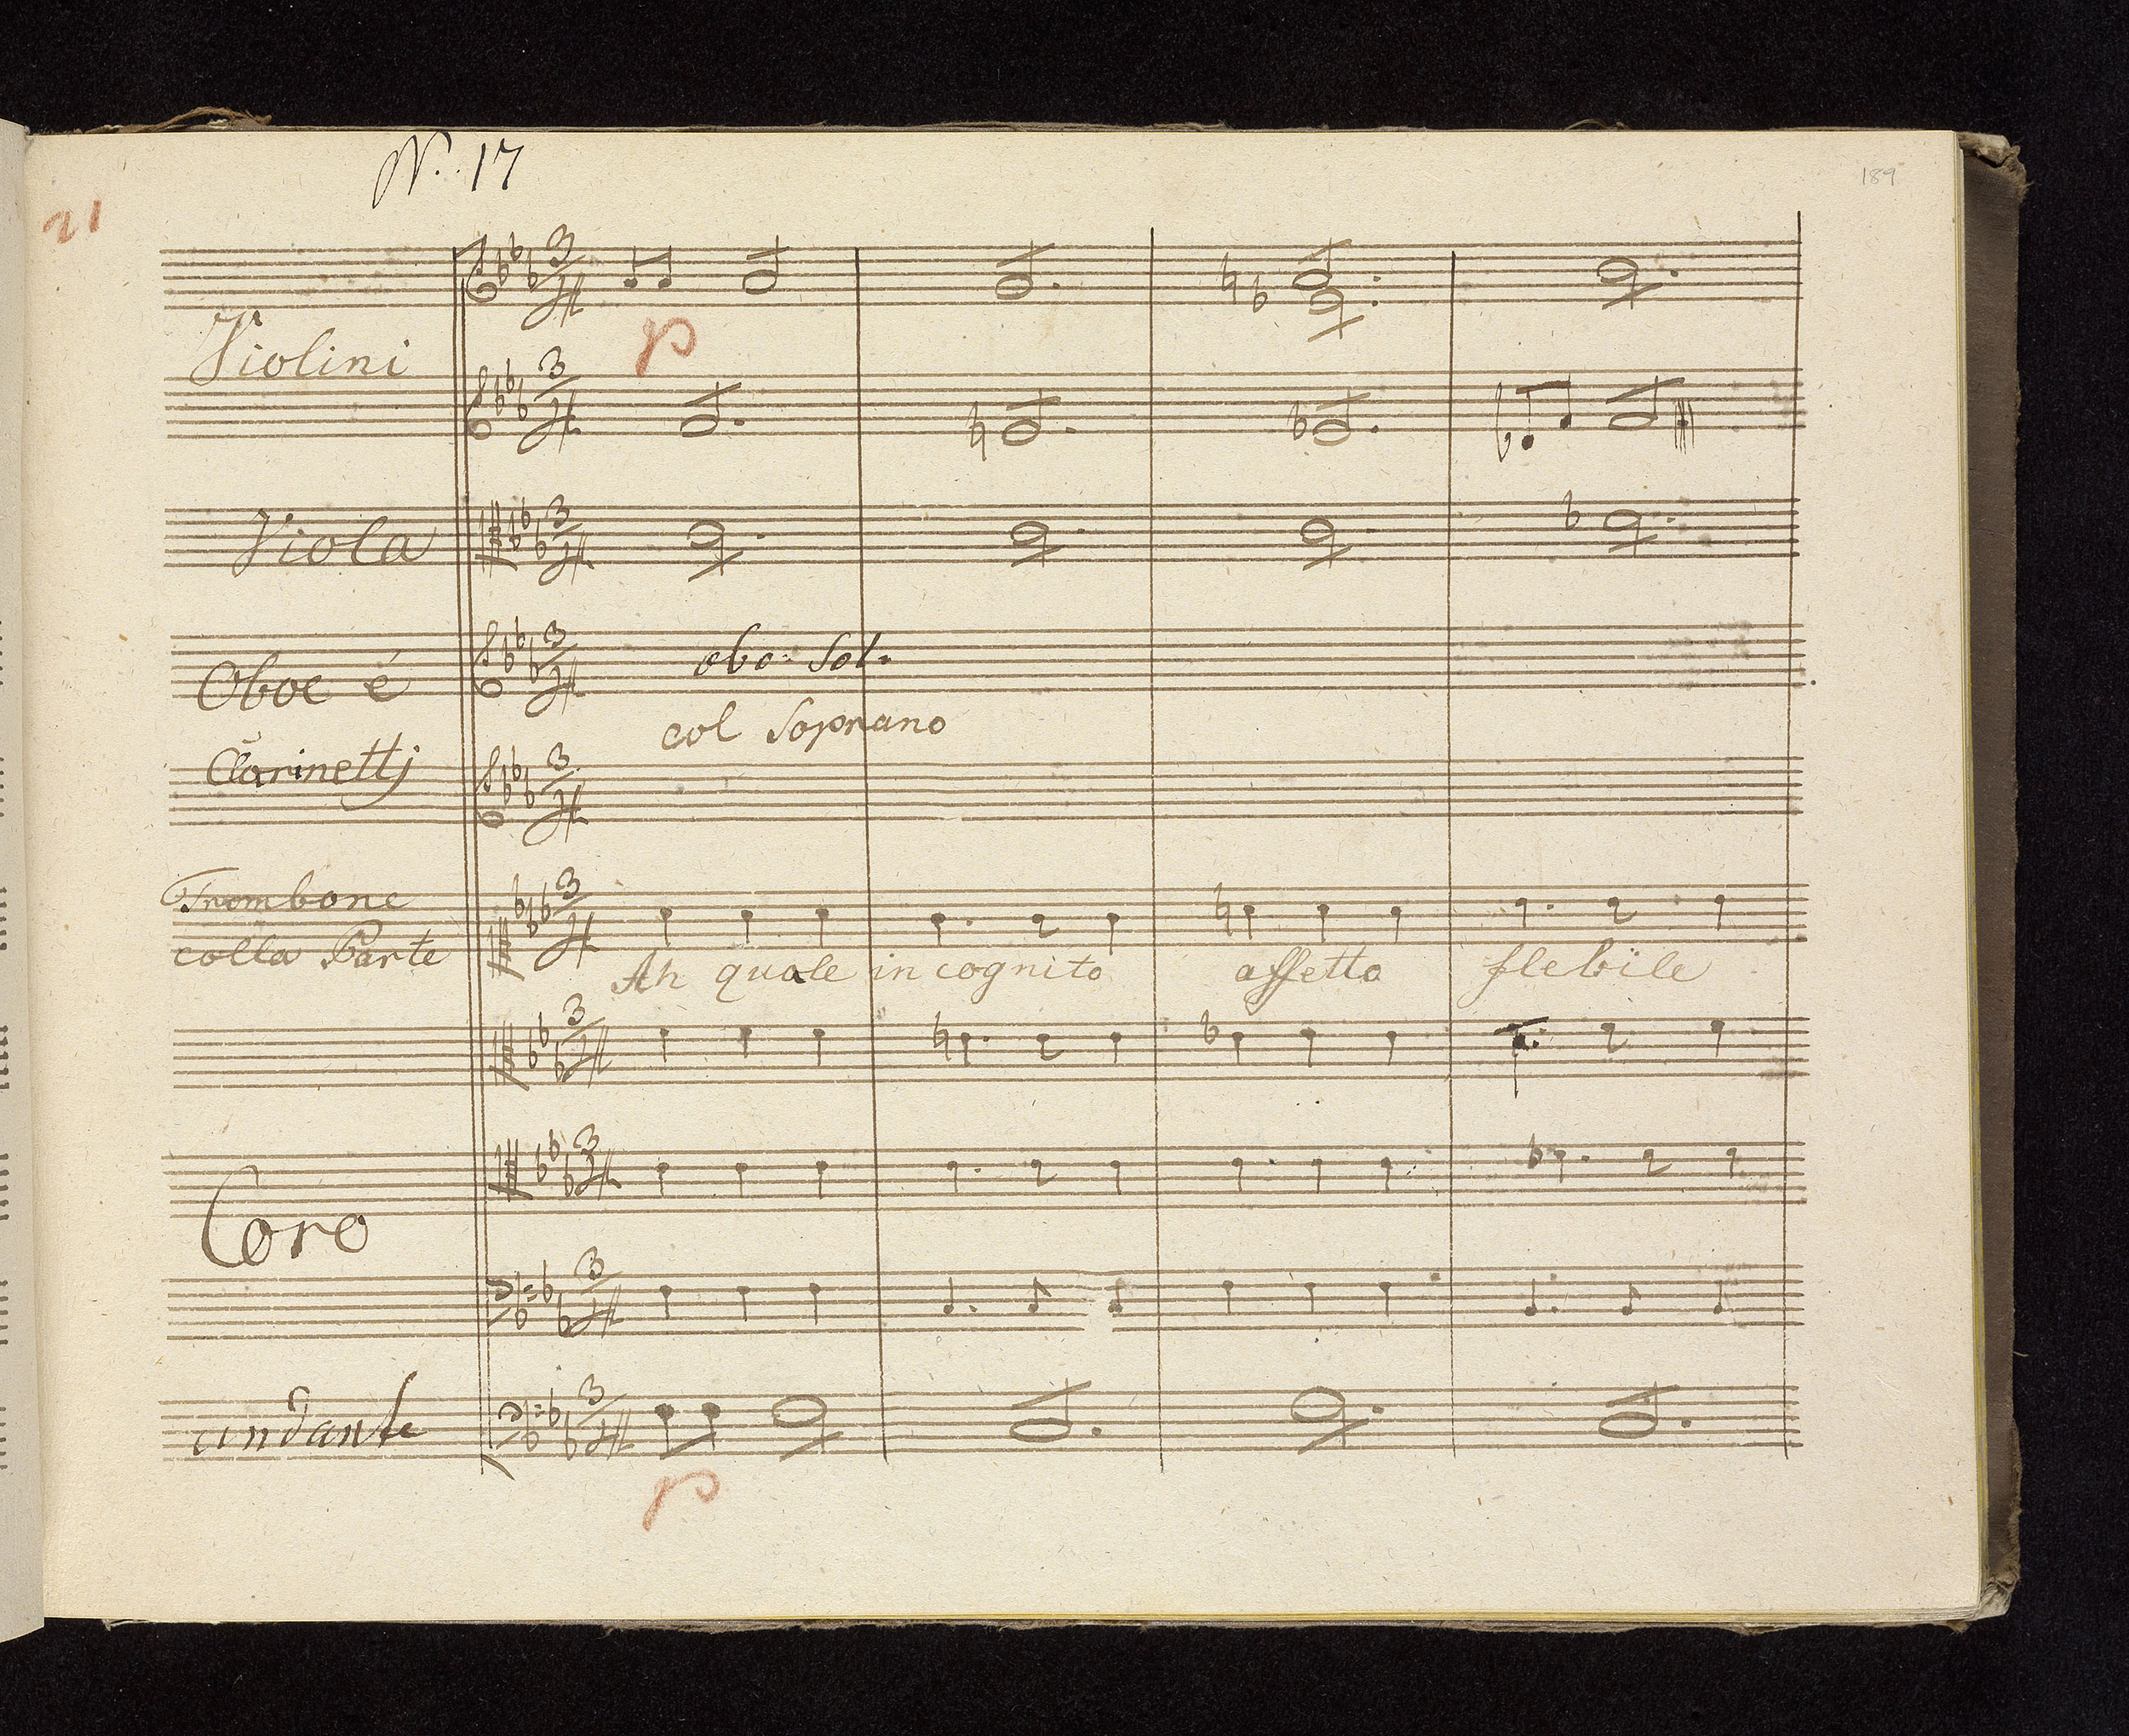 N. 17
189
21
Violini
p
Viola
Oboe é
obo: Sol.
col Soprano
Clarinetti
Trombone
colla Parte
Ah quale incognito affetto flebile
Coro
andante
p